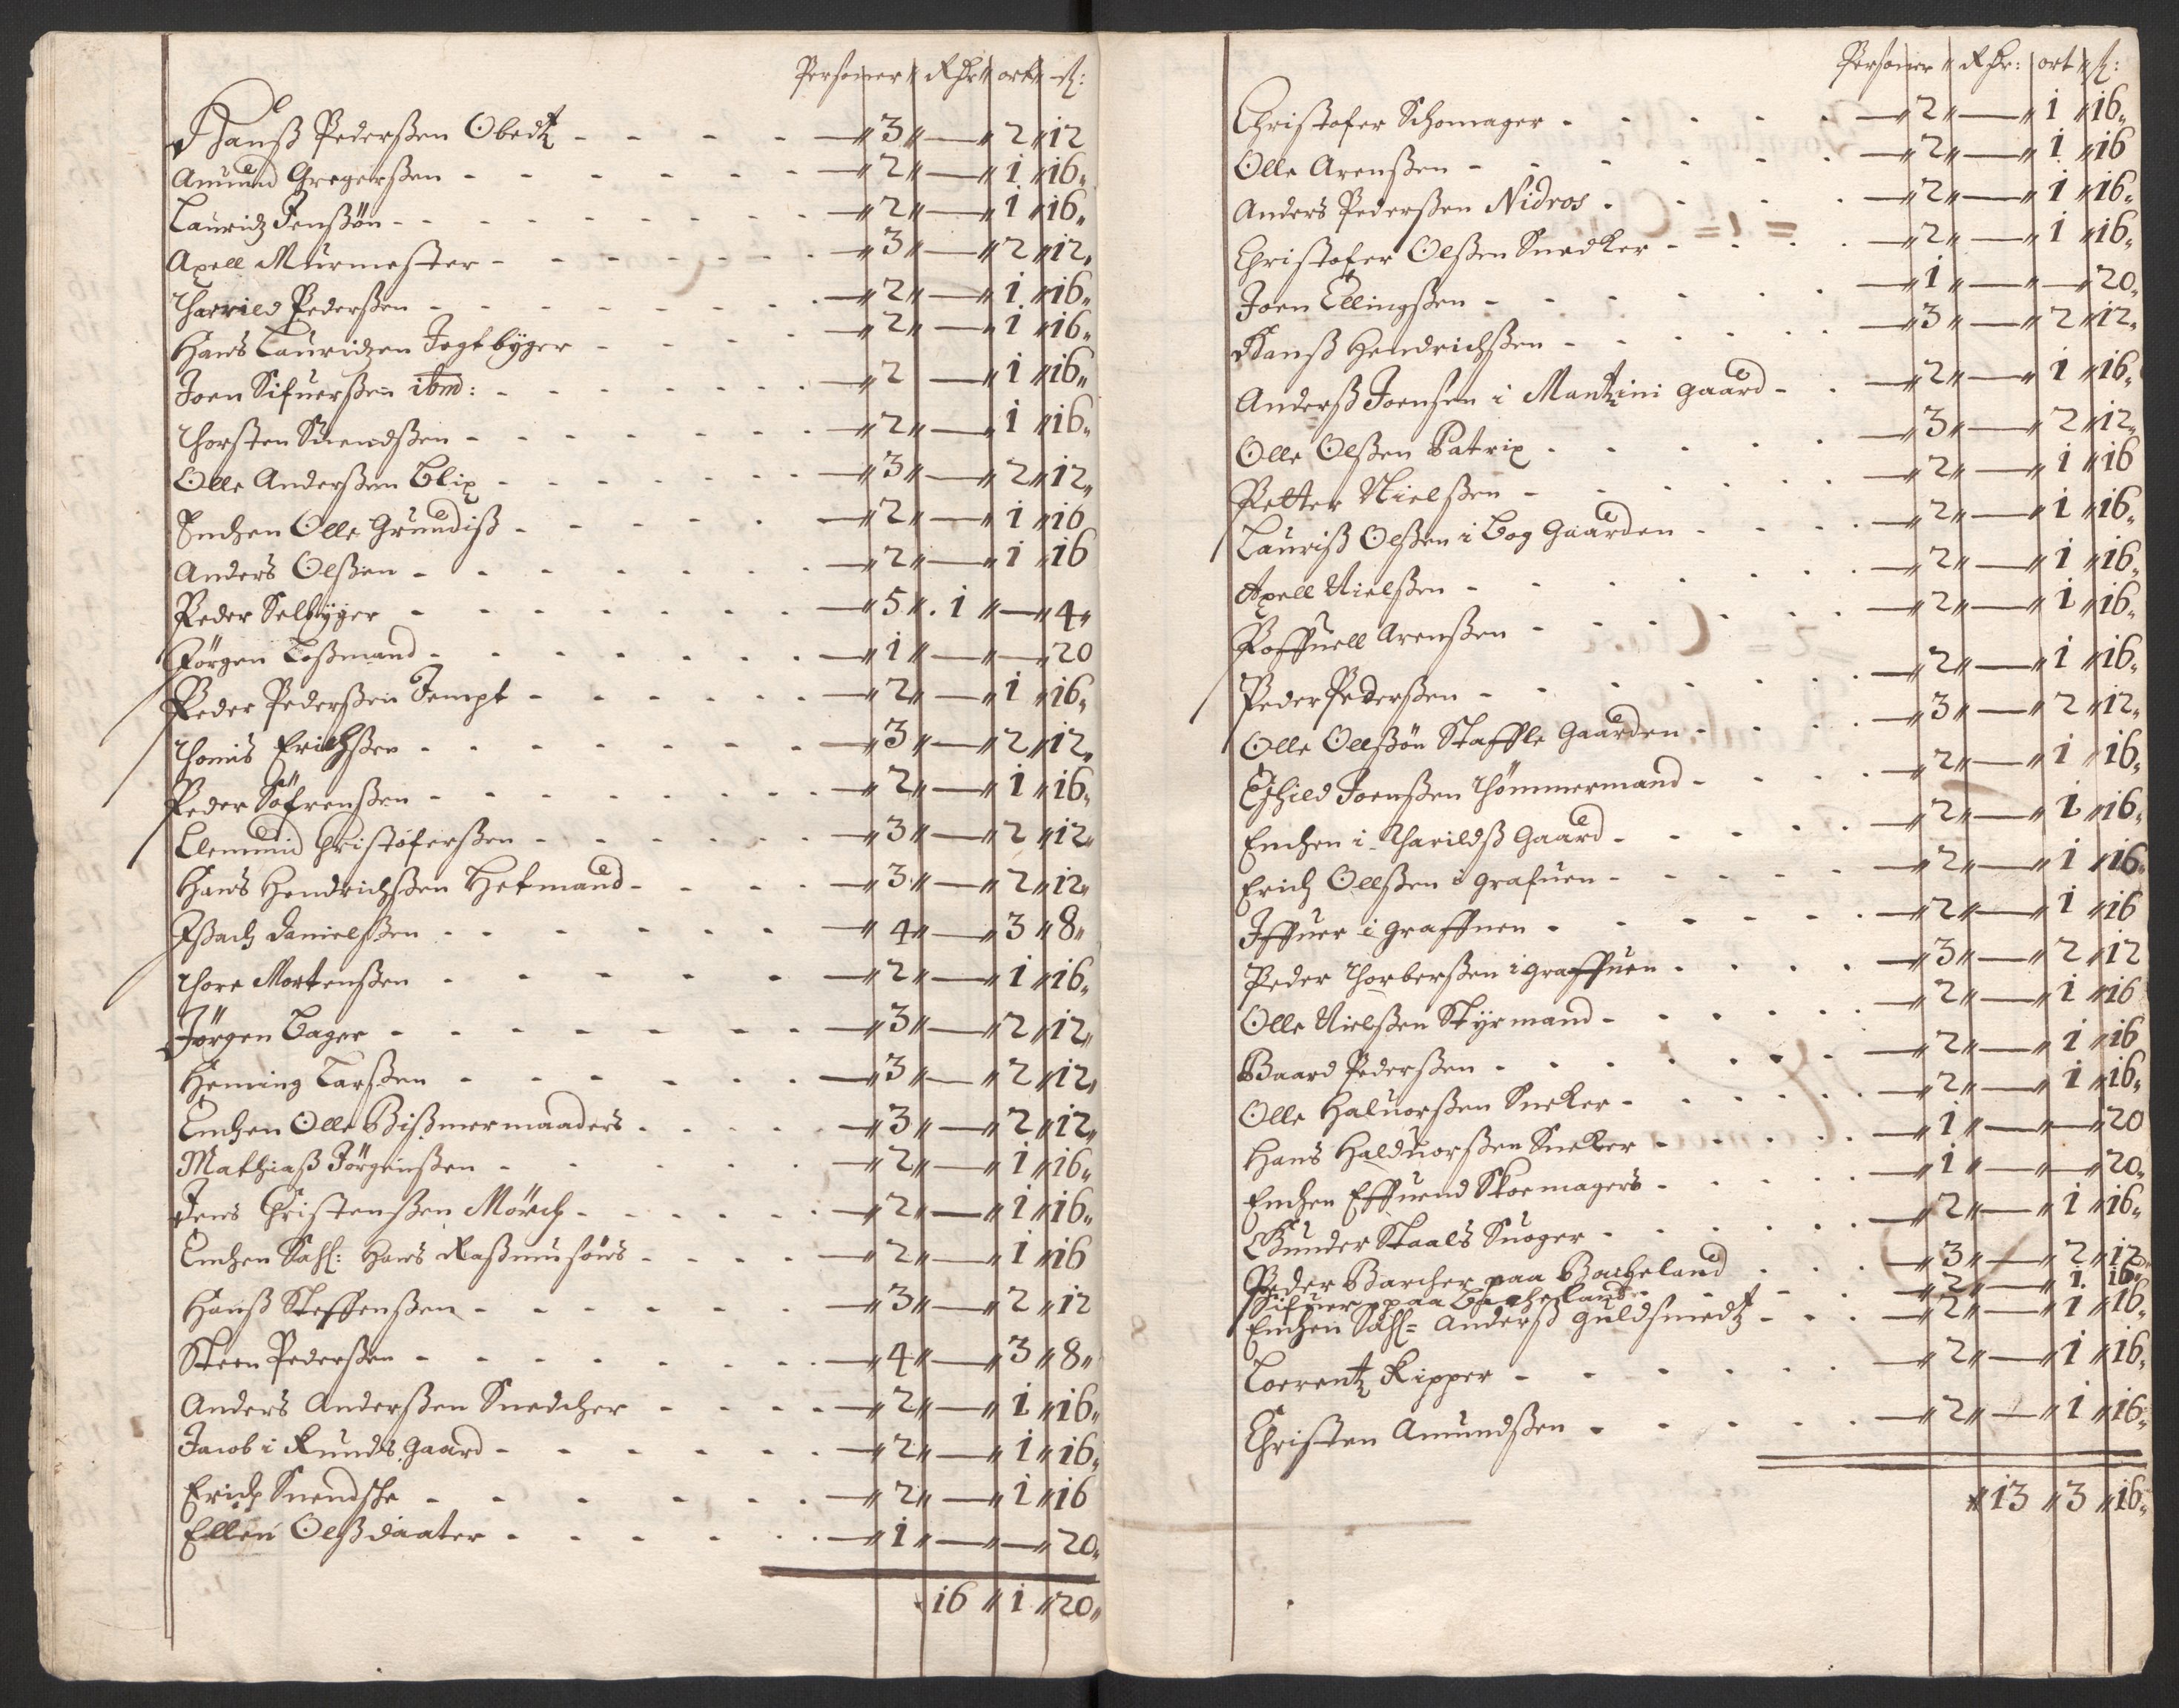 Personer Rdr ort ß:
Hanß Pederßen Obedtz - - - - 3 — 2 12
Amund Gregerßen - - - - 2 — 1 16
Lauridz Jenßøn - - - - 2 — 1 16
Axell Murmester - - - - 3 — 2 12
Tharild Pederßen - - - - 2 — 1 16
Hans Lauridzen Jegtbyger - - - - 2 — 1 16
Joen Sifuerßen ibm: - - - - 2 — 1 16
Thorsten Suendßen - - - - 2 — 1 16
Olle Anderßen Blix - - - - 3 — 2 12
Enchen Olle Grundiß - - - - 2 — 1 16
Anders Olßen - - - - 2 — 1 16
Peder Selbyger - - - - 5 1 — 4
Jörgen Loßmand - - - - 1 — — 20
Peder Pederßen Jempt - - - - 2 — 1 16
Thomis Erichßen - - - - 3 — 2 12
Peder Söfrenßen - - - - 2 — 1 16
Clemmid Christoferßen - - - - 3 — 2 12
Hans Hendrichßen Hekmand - - - - 3 — 2 12
Ißach Danielßen - - - - 4 — 3 8
Thore Mortenßen - - - - 2 — 1 16
Jörgen Bager - - - - 3 — 2 12
Heming Larßen - - - - 3 — 2 12
Enchen Olle Bißmermaaders - - - - 3 — 2 12
Mathiaß Jörgenßen - - - - 2 — 1 16
Jens Christenßen Mörch - - - - 2 — 1 16
Enchen Sahl: Hans Raßmusöns - - - - 2 — 1 16
Hanß Steffenßen - - - - 3 — 2 12
Steen Pederßen - - - - 4 — 3 8
Anders Anderßen Snedcher - - - - 2 — 1 16
Jacob i Runds Gaard - - - - 2 — 1 16
Erich Suendsche - - - - 2 — 1 16
Ellen Olßdaater - - - - 1 — — 20
16 1 20
Personer Rdr: ort ß:
Christofer Schomager - - - - 2 — 1 16
Olle Arenßen - - - - 2 — 1 16
Anders Pederßen Nidros - - - - 2 — 1 16
Christofer Olßen Snedker - - - - 2 — 1 16
Joen Ellingßen - - - - 1 — — 20
Hanß Hendrichßen - - - - 3 — 2 12
Anderß Joensen i Mantzini gaard - - 2 — 1 16
Olle Olßen Patrix - - - - 3 — 2 12
Petter Nielßen - - - - 2 — 1 16
Lauriß Olßen i Bog Gaarden - - - - 2 — 1 16
Axell Nielßen - - - - 2 — 1 16
Poffuell Arenßen - - - - 2 — 1 16
Peder Pederßen - - - - 2 — 1 16
Olle Ollßön Staffle Gaarden - - - - 3 — 2 12
Eschild Joenßen Thömmermand - - - - 2 — 1 16
Enchen i Tharildß Gaard - - - - 2 — 1 16
Erich Ollßen i grafuen - - - - 2 — 1 16
Iffuer i graffuen - - - - 2 — 1 16
Peder Thorberßen i graffuen - - - - 3 — 2 12
Olle Nielßen Styrmand - - - - 2 — 1 16
Baard Pederßen - - - - 2 — 1 16
Olle Haluorßen Sneker - - - - 2 — 1 16
Hans Halduorßen Sneker - - - - 1 — — 20
Enchen Effuend Skoemagers - - - - 1 — — 20
Gunder Staals Suoger - - - - 2 — 1 16
Peder Barcher paa Bacheland - - - 3 — 2 12
Sifuer paa Bacheland - - - 2 — 1 16
Enchen Sahl= Anderß guldsmedtz - - - 2 — 1 16
Loerentz Ripper - - - - 2 — 1 16
Christen Amundßen - - - - 2 — 1 16
13 3 16